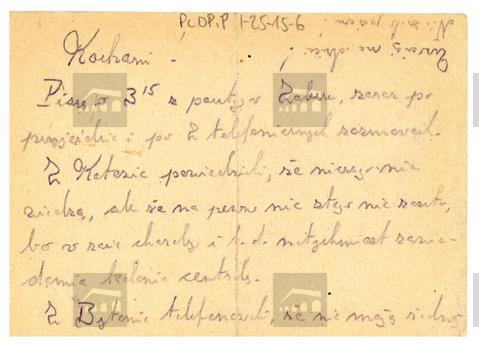 PCOP.P 1-25-15-6
Kochani -
Piszę o 3 15 z poczty w Zabrzu, zaraz po
przyjeździe i po 2 telefonicznych rozmowach.
Z Katowic powiedzieli, że niczego nie
wiedzą, ale że na pewno nic złego nie zaszło,
bo w razie choroby i t. d. natychmiast zawia-
damia kolonia centralę.
Z Bytomia telefonowali, że nie mają